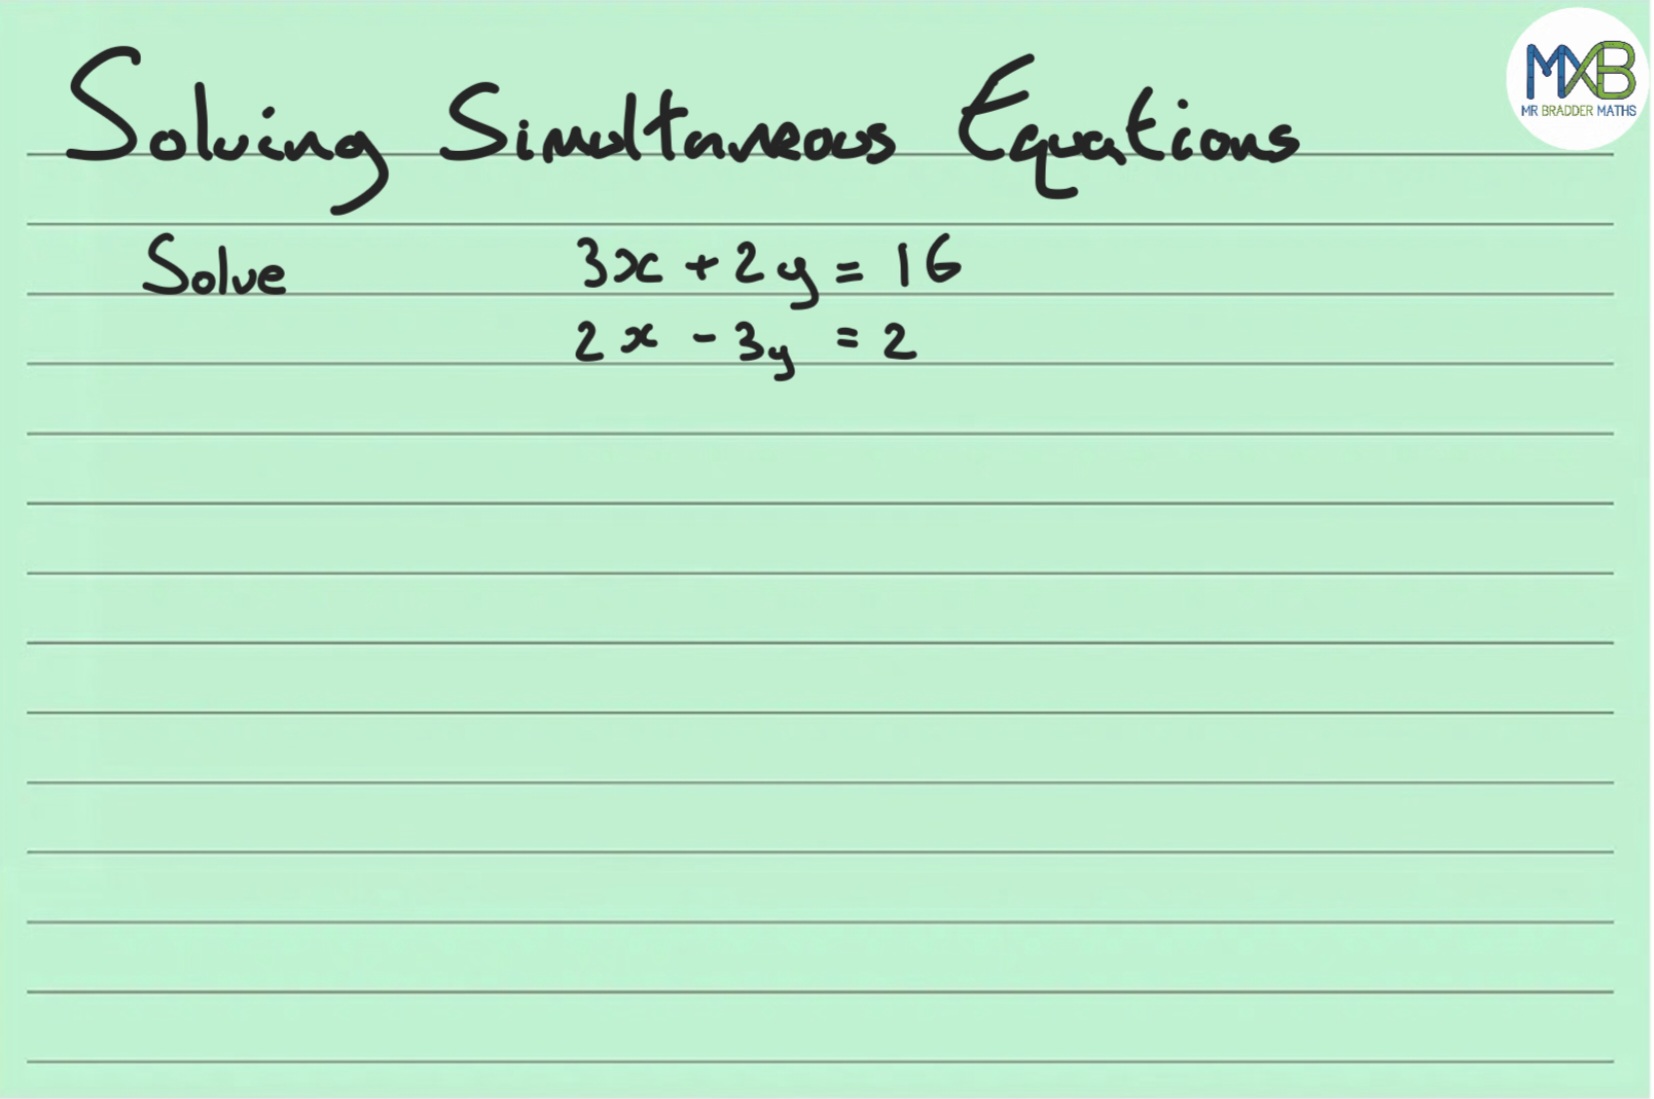 Solving Simultaneous Equations
MXB
MR BRADDER MATHS
Solve 3x + 2y = 16
2x - 3y = 2